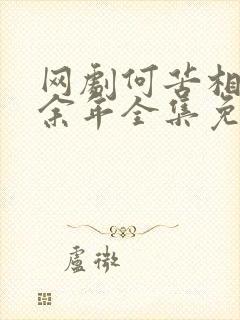 网剧何苦相
余年全集免
虚微